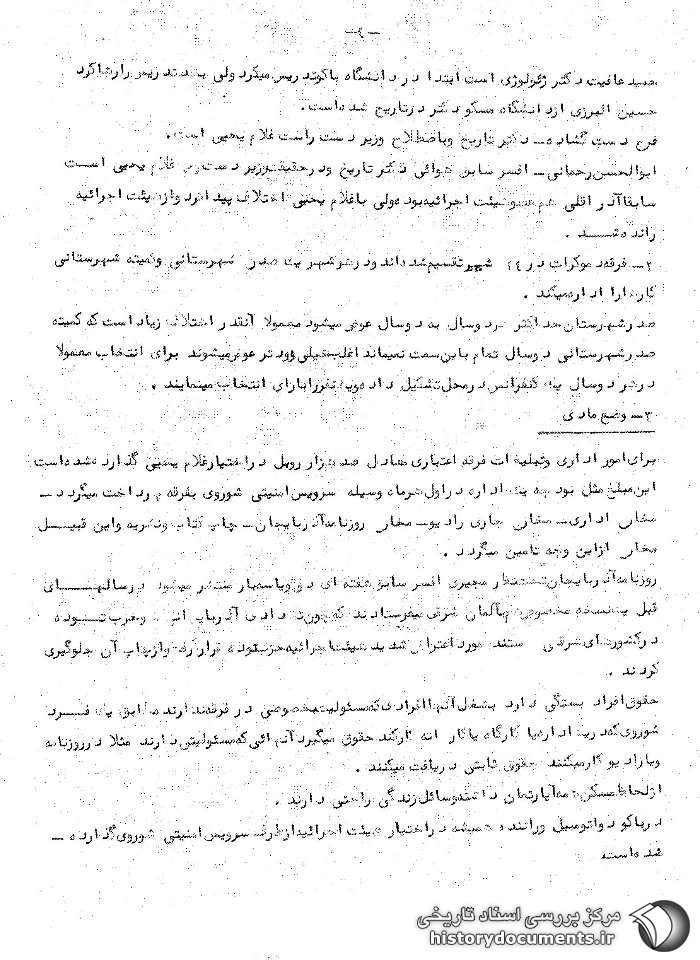 حمید عاقبت دکتر ژئولوژی است ابتدا در دانشگاه باکوتدریس میکرد ولی بعد تدریس را رها کرد
حسین البرزی از دانشگاه مسکو دکتر در تاریخ شده‌است.
فرج دست گشاده — دکتر تاریخ و باصطلاح وزیر دست راست غلام یحیی است.
ابوالحسن رحمانی — افسر سابق هوائی دکتر تاریخ و در حقیقت وزیر دست غلام یحیی است
سابقا آذر اقلی هم عضو هیئت اجرائیه بوده ولی با غلام یحیی اختلاف پیدا کرد و از هیئت اجرائیه
رانده شد.
۲— فرقه دموکرات در ۲۴ شهر تقسیم شده‌اند و در هر شهر یک صدر شهرستانی و کمیته شهرستانی
کارها را اداره میکند.
صدر شهرستان حداکثر هر دو سال به دو سال عوض میشود معمولا آنقدر اختلاف زیاد است که کمیته
صدر شهرستانی دو سال تمام باین سمت نمیماند اغلب خیلی زودتر عوض میشوند برای انتخاب معمولا
در هر دو سال یک کنفرانس در محل تشکیل داده و یکنفر را بارای انتخاب مینمایند.
۳— وضع مادی
برای امور اداری و تبلیغات فرقه اعتباری معادل صد هزار روبل در اختیار غلام یحیی گذارده شده‌است
این مبلغ مثل بودجه یک اداره در اول هر ماه وسیله سرویس امنیتی شوروی بفرقه پرداخت میگردد —
مخارج اداری — مخارج جاری رادیو — مخارج روزنامه آذربایجان — چاپ کتاب و نشریه و این قبیل
مخارج از این وجه تامین میگردد.
روزنامه آذربایجان تحت نظر مجیری افسر سابق هفته‌ای دو ورقه بسیار منتشر میشود در سالهای
قبل یک نسخه مخصوص هم بآلمان شرقی میفرستادند که چون تعدادی آذربایجانی و عرب توده
در کشورهای شرقی هستند مورد اعتراض شدید هیئت اجرائیه حزب توده قرار گرفت و از چاپ آن جلوگیری
کردند.
حقوق افراد بستگی دارد بشغل آنها افرادیکه مسئولیت بخصوصی در فرقه ندارند مطابق یک فرد
شوروی که در یک اداره یا کارگاه یا کارخانه کار کند حقوق میگیرد آنهائی که مسئولیتی دارند مثلا در روزنامه
و یا رادیو کار میکنند حقوق ثابتی دریافت میکنند.
از لحاظ مسکن همه آپارتمان داشته وسائل زندگی راحتی دارند.
در باکو دو اتومبیل و راننده همیشه در اختیار هیئت اجرائیه از طرف سرویس امنیتی شوروی گذارده —
شده‌است
مرکز بررسی اسناد تاریخی
historydocuments.ir